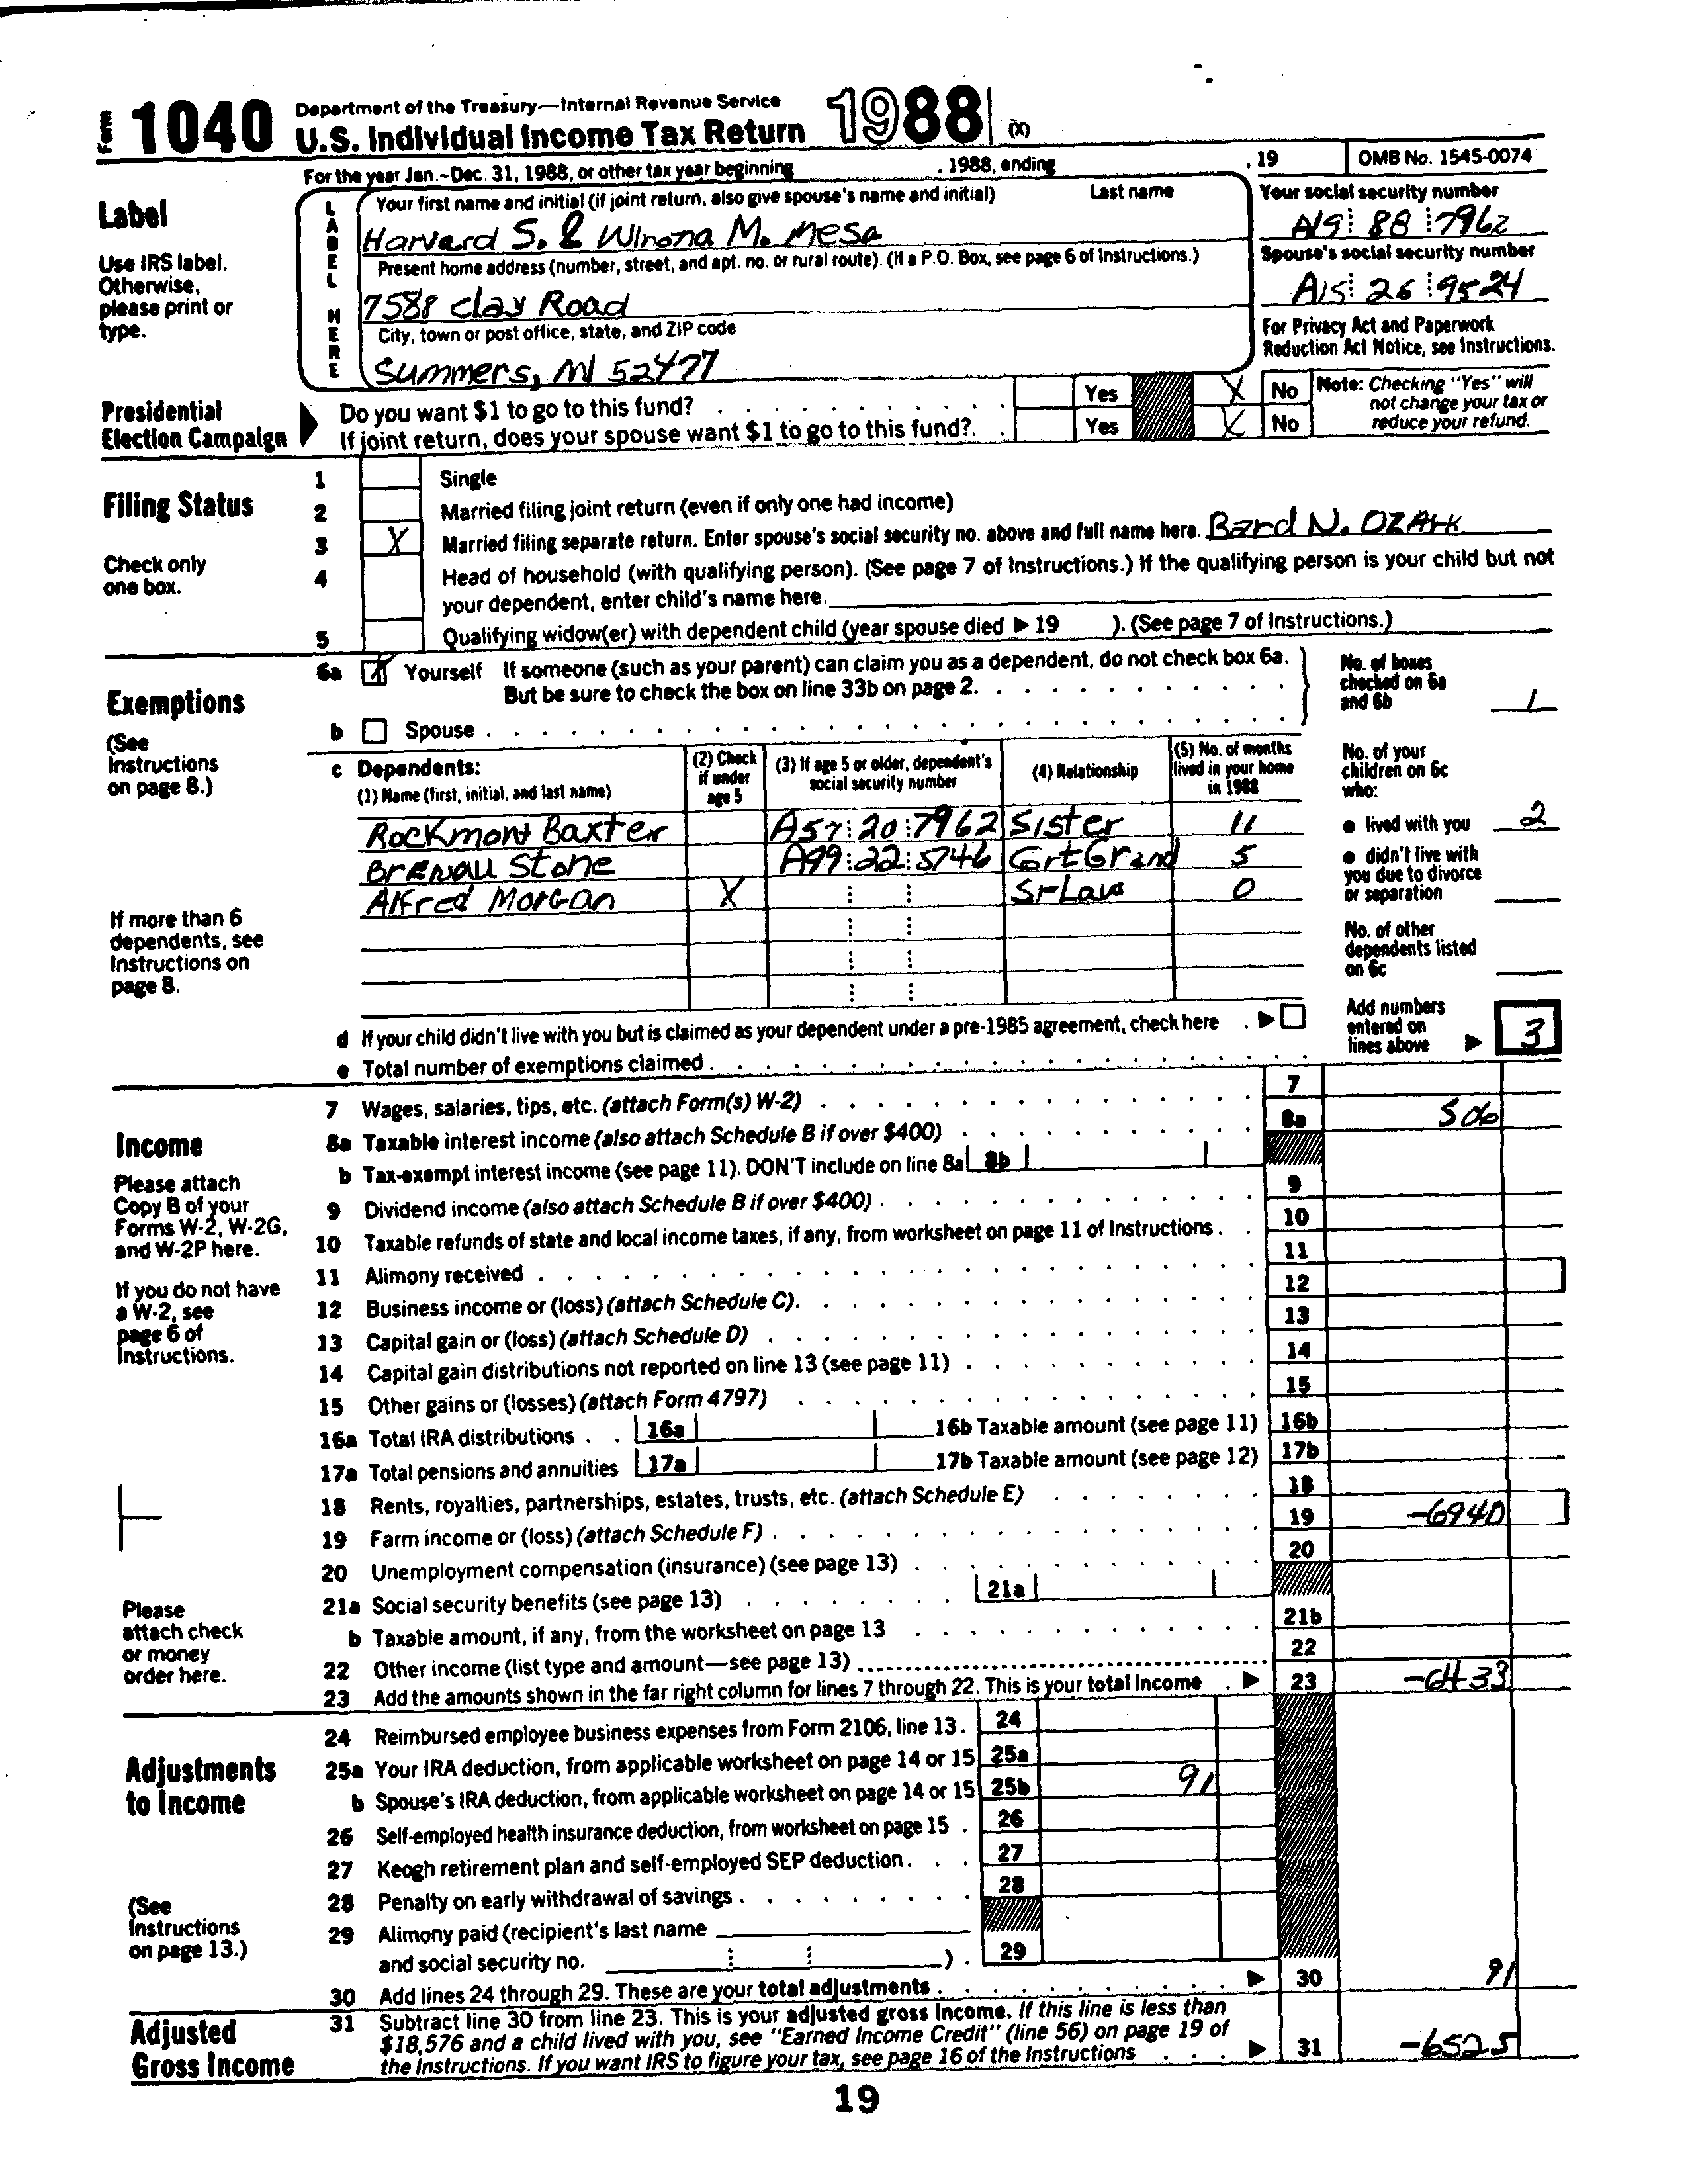 Form 1040 Department of the Treasury—Internal Revenue Service
U.S. Individual Income Tax Return 1988 (X)
For the year Jan.–Dec. 31, 1988, or other tax year beginning , 1988, ending , 19 OMB No. 1545-0074
Label
Use IRS label.
Otherwise,
please print or
type.
LABEL HERE
Your first name and initial (if joint return, also give spouse's name and initial) Last name
Harvard S. & Winona M. Mesa
Your social security number
A19 88 7962
Present home address (number, street, and apt. no. or rural route). (If a P.O. Box, see page 6 of Instructions.)
7588 Clay Road
Spouse's social security number
A15 26 9524
City, town or post office, state, and ZIP code
Summers, MI 52477
For Privacy Act and Paperwork
Reduction Act Notice, see Instructions.
Presidential
Election Campaign
Do you want $1 to go to this fund? Yes X No
If joint return, does your spouse want $1 to go to this fund?. Yes X No
Note: Checking "Yes" will
not change your tax or
reduce your refund.
Filing Status
Check only
one box.
1 Single
2 Married filing joint return (even if only one had income)
3 X Married filing separate return. Enter spouse's social security no. above and full name here. Bard N. OZArk
4 Head of household (with qualifying person). (See page 7 of Instructions.) If the qualifying person is your child but not
your dependent, enter child's name here.
5 Qualifying widow(er) with dependent child (year spouse died ▶ 19 ). (See page 7 of Instructions.)
Exemptions
(See
Instructions
on page 8.)
6a X Yourself If someone (such as your parent) can claim you as a dependent, do not check box 6a.
But be sure to check the box on line 33b on page 2.
b Spouse
No. of boxes
checked on 6a
and 6b 1
c Dependents:
(1) Name (first, initial, and last name)
(2) Check
if under
age 5
(3) If age 5 or older, dependent's
social security number
(4) Relationship
(5) No. of months
lived in your home
in 1988
Rockmont Baxter A57 20 7962 Sister 11
BrENau Stone A99 22 5746 GrtGrand 5
Alfred Morgan X SrLaw 0
No. of your
children on 6c
who:
● lived with you 2
● didn't live with
you due to divorce
or separation
No. of other
dependents listed
on 6c
If more than 6
dependents, see
Instructions on
page 8.
d If your child didn't live with you but is claimed as your dependent under a pre-1985 agreement, check here ▶
e Total number of exemptions claimed
Add numbers
entered on
lines above ▶ 3
Income
Please attach
Copy B of your
Forms W-2, W-2G,
and W-2P here.
If you do not have
a W-2, see
page 6 of
Instructions.
7 Wages, salaries, tips, etc. (attach Form(s) W-2) 7
8a Taxable interest income (also attach Schedule B if over $400) 8a 506
b Tax-exempt interest income (see page 11). DON'T include on line 8a 8b
9 Dividend income (also attach Schedule B if over $400) 9
10 Taxable refunds of state and local income taxes, if any, from worksheet on page 11 of Instructions 10
11 Alimony received 11
12 Business income or (loss) (attach Schedule C) 12
13 Capital gain or (loss) (attach Schedule D) 13
14 Capital gain distributions not reported on line 13 (see page 11) 14
15 Other gains or (losses) (attach Form 4797) 15
16a Total IRA distributions 16a 16b Taxable amount (see page 11) 16b
17a Total pensions and annuities 17a 17b Taxable amount (see page 12) 17b
18 Rents, royalties, partnerships, estates, trusts, etc. (attach Schedule E) 18
19 Farm income or (loss) (attach Schedule F) 19 -6940
20 Unemployment compensation (insurance) (see page 13) 20
21a Social security benefits (see page 13) 21a
b Taxable amount, if any, from the worksheet on page 13 21b
22 Other income (list type and amount—see page 13) 22
23 Add the amounts shown in the far right column for lines 7 through 22. This is your total income ▶ 23 -6433
Please
attach check
or money
order here.
Adjustments
to Income
(See
Instructions
on page 13.)
24 Reimbursed employee business expenses from Form 2106, line 13. 24
25a Your IRA deduction, from applicable worksheet on page 14 or 15 25a
b Spouse's IRA deduction, from applicable worksheet on page 14 or 15 25b 91
26 Self-employed health insurance deduction, from worksheet on page 15 26
27 Keogh retirement plan and self-employed SEP deduction 27
28 Penalty on early withdrawal of savings 28
29 Alimony paid (recipient's last name
and social security no. ) 29
30 Add lines 24 through 29. These are your total adjustments ▶ 30 91
Adjusted
Gross Income
31 Subtract line 30 from line 23. This is your adjusted gross income. If this line is less than
$18,576 and a child lived with you, see "Earned Income Credit" (line 56) on page 19 of
the Instructions. If you want IRS to figure your tax, see page 16 of the Instructions ▶ 31 -6525
19